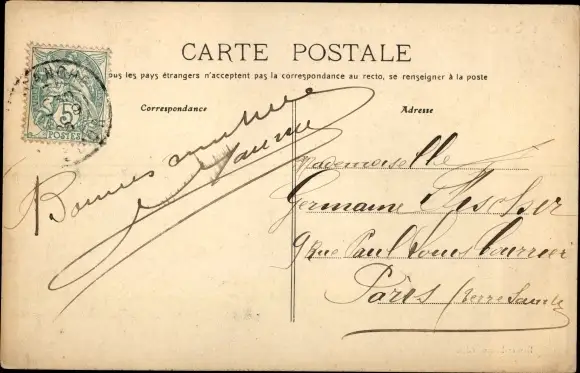 CARTE POSTALE
ous les pays étrangers n'acceptent pas la correspondance au recto, se renseigner à la poste
Correspondance
Adresse
5
POSTES
Bonnes
Mademoiselle
Germaine Fischer
9 Rue Paul Louis Courrier
Paris